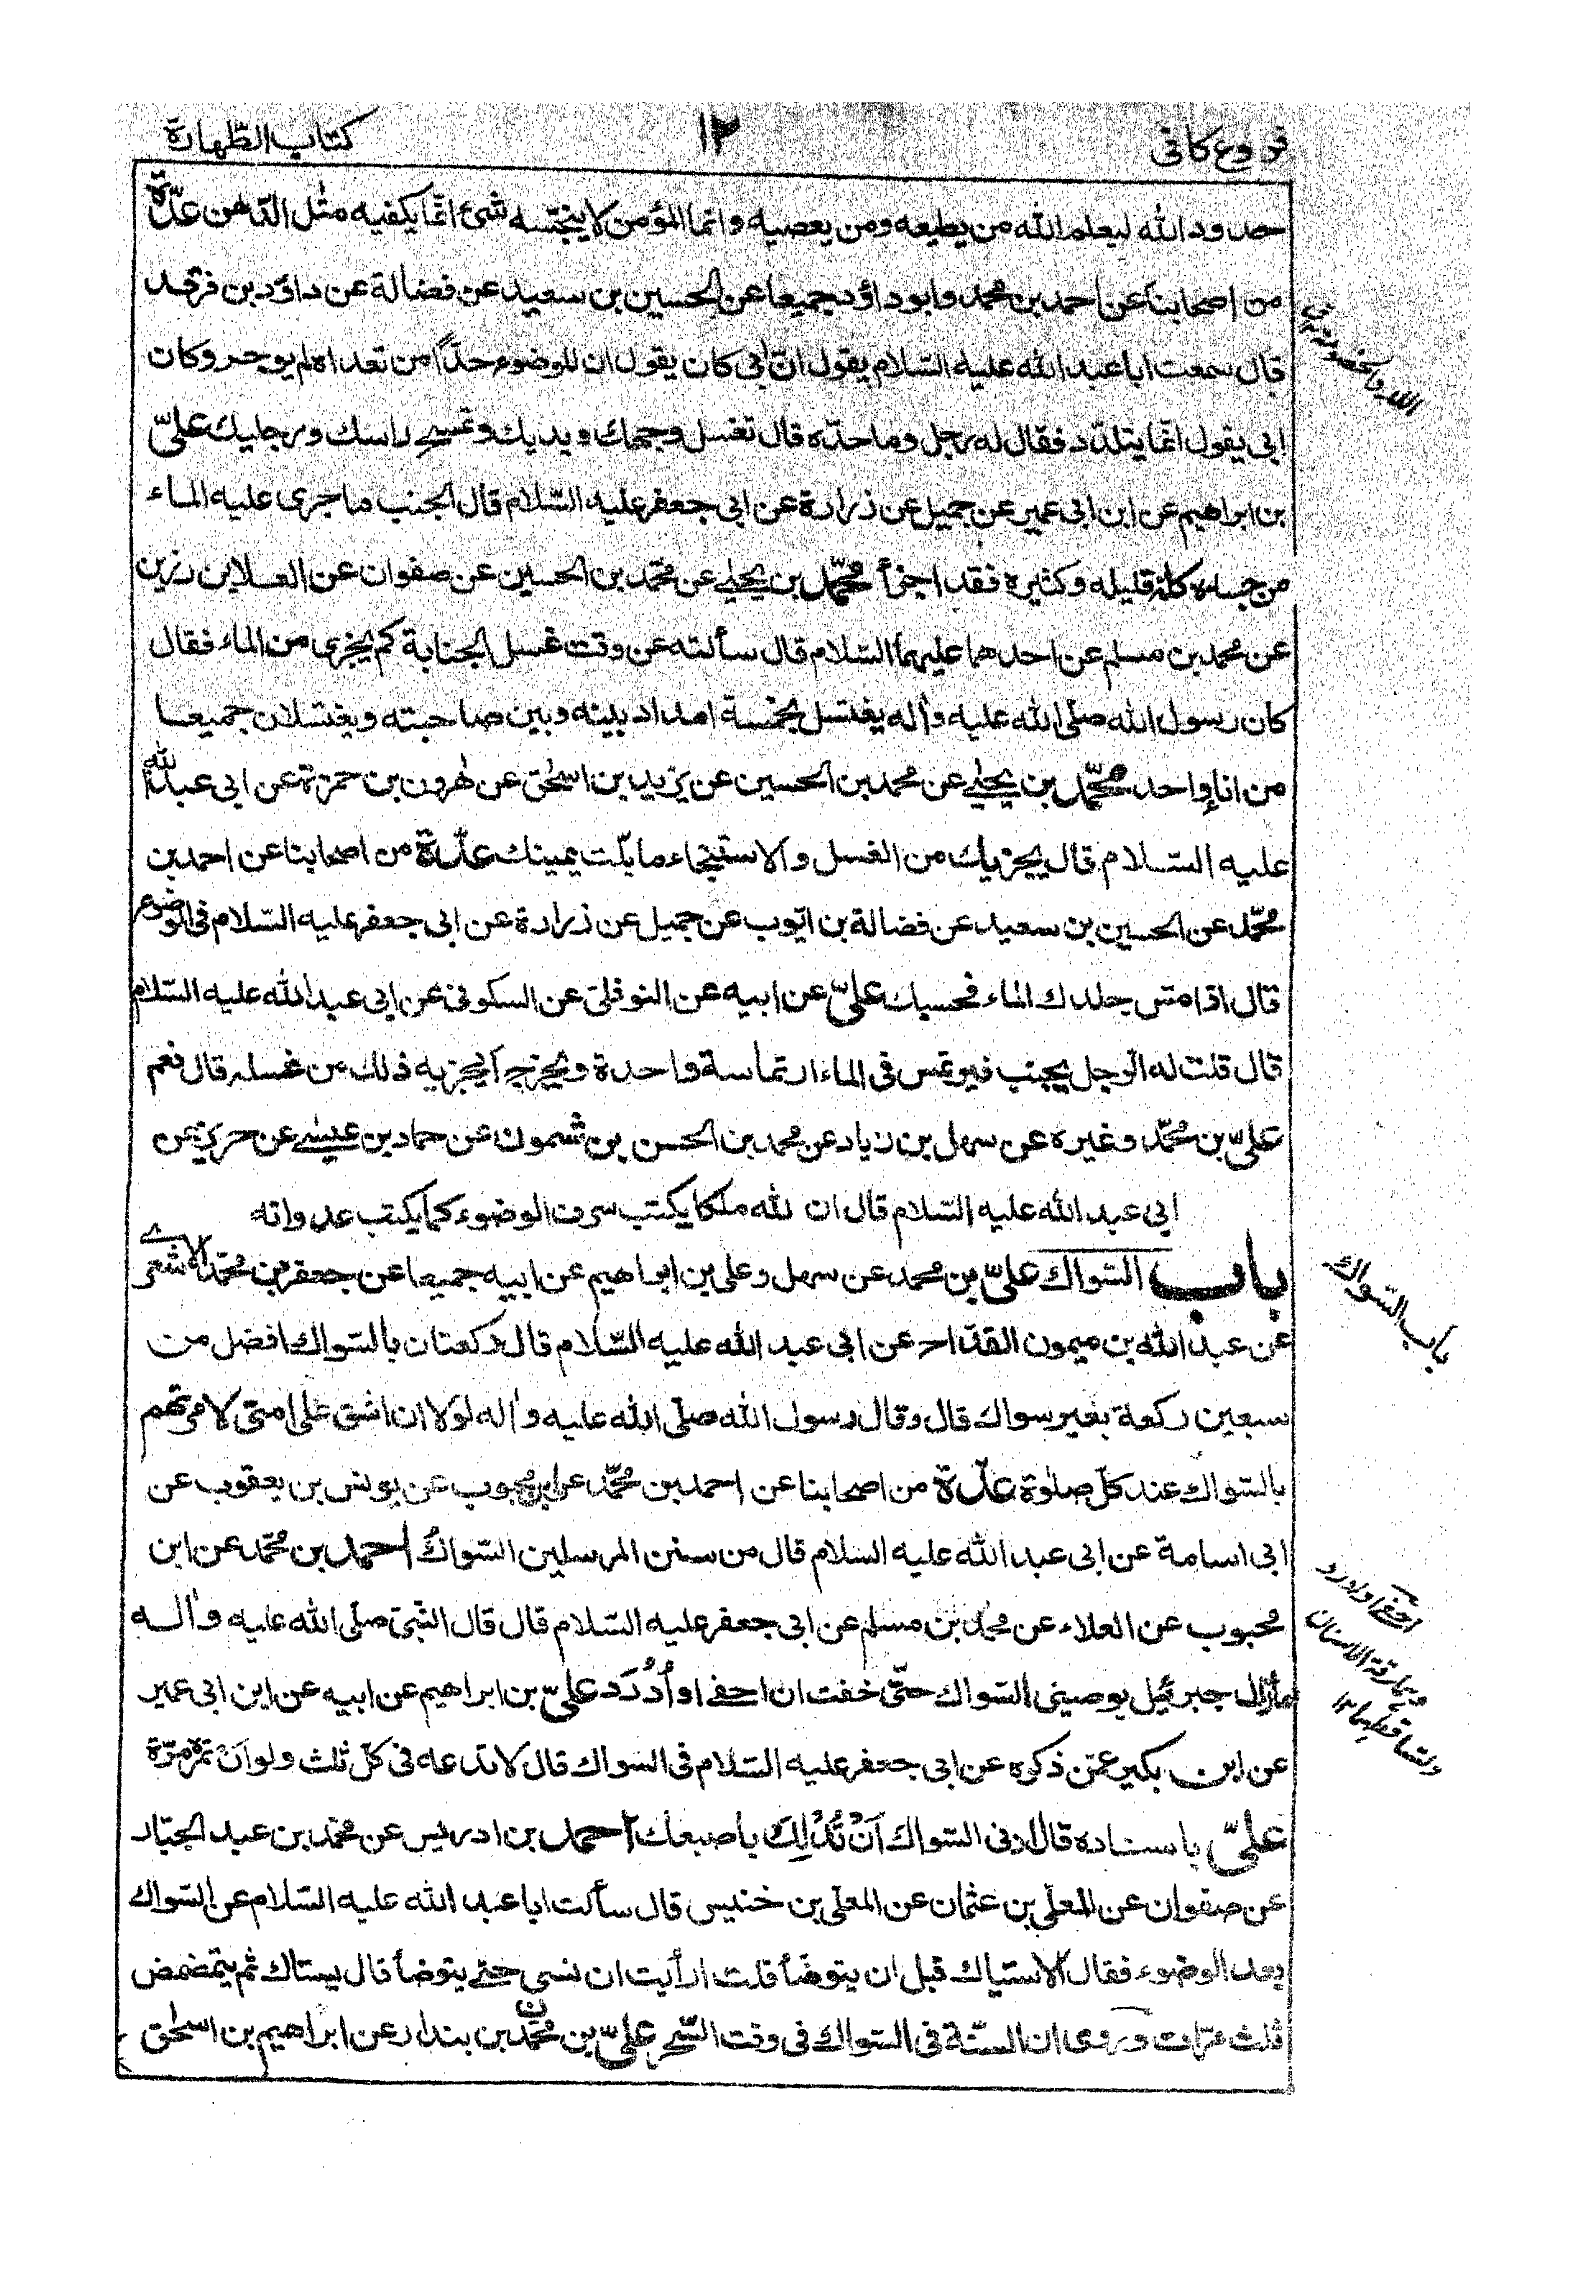 فروع کافی
١٢
کتاب الطّهارة
حدود الله لیعلم الله من یطیعه ومن یعصیه وانما المؤمن لا ینجّسه شئ انّما یکفیه مثل الدّهن عدّة
من اصحابنا عن احمد بن محمد وابو داؤد جمیعا عن الحسین بن سعید عن فضالة عن داؤد بن فرقد
قال سمعت ابا عبد الله علیه السّلام یقول انّ ابی کان یقول ان للوضوء حدّاً من تعداه لم یوجر وکان
ابی یقول انّما یتلدّد فقال له رجل وما حدّه قال تغسل وجهك ویدیك وتمسح راسك ورجلیك علیّ
بن ابراهیم عن ابن ابی عمیر عن جمیل عن زرارة عن ابی جعفر علیه السّلام قال الجنب ما جری علیه الماء
من جسده قلیله وکثیره فقد اجزأ محمّد بن یحیٰی عن محمّد بن الحسین عن صفوان عن العلا بن رزین
عن محمد بن مسلم عن احدهما علیهما السّلام قال سألته عن وقت غسل الجنابة کم یجزی من الماء فقال
کان رسول الله صلّی الله علیه وآله یغتسل بخمسة امداد بینه وبین صاحبته ویغتسلان جمیعا
من اناء واحد محمّد بن یحیٰی عن محمد بن الحسین عن یزید بن اسحٰق عن هٰرون بن حمزة عن ابی عبد الله
علیه السّلام قال یجزیك من الغسل والاستنجاء ما بلّت یمینك عدّة من اصحابنا عن احمد بن
محمّد عن الحسین بن سعید عن فضالة بن ایّوب عن جمیل عن زرارة عن ابی جعفر علیه السّلام فی الوضوء
قال اذا مسّ جلدك الماء فحسبك علیّ عن ابیه عن النوفلیّ عن السکونی عن ابی عبد الله علیه السّلام
قال قلت له الرّجل یجنب فیرتمس فی الماء ارتماسة واحدة ویخرج ایجزیه ذلك من غسله قال نعم
علیّ بن محمّد وغیره عن سهل بن زیاد عن محمد بن الحسن بن شمون عن حماد بن عیسٰی عن حریز عن
ابی عبد الله علیه السّلام قال ان لله ملکا یکتب سرف الوضوء کما یکتب عدوانه
باب السّواك علیّ بن محمد عن سهل وعلی بن ابراهیم عن ابیه جمیعا عن جعفر بن محمّد الاشعری
عن عبد الله بن میمون القدّاح عن ابی عبد الله علیه السّلام قال رکعتان بالسّواك افضل من
سبعین رکعة بغیر سواك قال وقال رسول الله صلّی الله علیه وآله لولا ان اشق علی امتی لامرتهم
بالسّواك عند کلّ صلوٰة عدّة من اصحابنا عن احمد بن محمّد عن ابن محبوب عن یونس بن یعقوب عن
ابی اسامة عن ابی عبد الله علیه السلام قال من سنن المرسلین السّواك احمد بن محمّد عن ابن
محبوب عن العلاء عن محمّد بن مسلم عن ابی جعفر علیه السّلام قال قال النبیّ صلّی الله علیه وآله
ما زال جبرئیل یوصینی السّواك حتّی خفت ان احفی او أدرد علیّ بن ابراهیم عن ابیه عن ابن ابی عمیر
عن ابن بکیر عمّن ذکره عن ابی جعفر علیه السّلام فی السواك قال لا تدعه فی کلّ ثلث ولو ان تمرّه مرّة
علیّ باسناده قال ادنی السّواك اَنْ تُدْلِكَ باصبعك احمد بن ادریس عن محمّد بن عبد الجبّار
عن صفوان عن المعلّی بن عثمان عن المعلّی بن خنیس قال سألت ابا عبد الله علیه السّلام عن السّواك
بعد الوضوء فقال الاستیاك قبل ان یتوضّأ قلت ارأیت ان نسی حتٰی یتوضأ قال یستاك ثم یتمضمض
ثلث مرّات وروی ان السنّة فی السّواك فی وقت السّحر علیّ بن محمّد بن بندار عن ابراهیم بن اسحٰق
باب السّواك